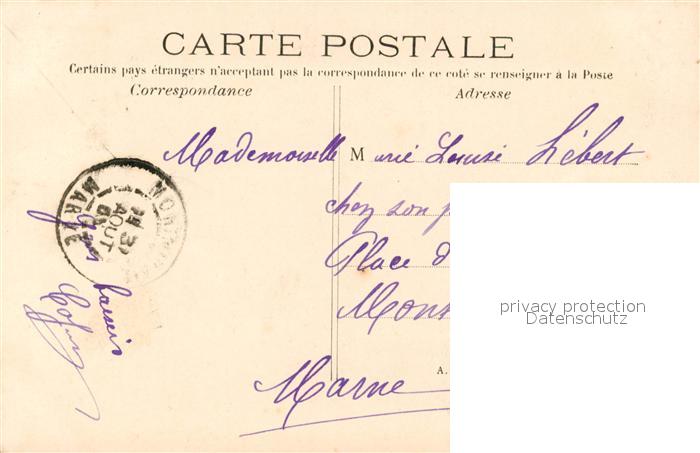 CARTE POSTALE
Certains pays étrangers n'acceptent pas la correspondance de ce coté se renseigner à la Poste
Correspondance
Adresse
Mademoiselle Marie Louise Hébert
chez son p
Place d
Mons
Marne
A.
MARNE
31
AOUT
baisers
privacy protection
Datenschutz